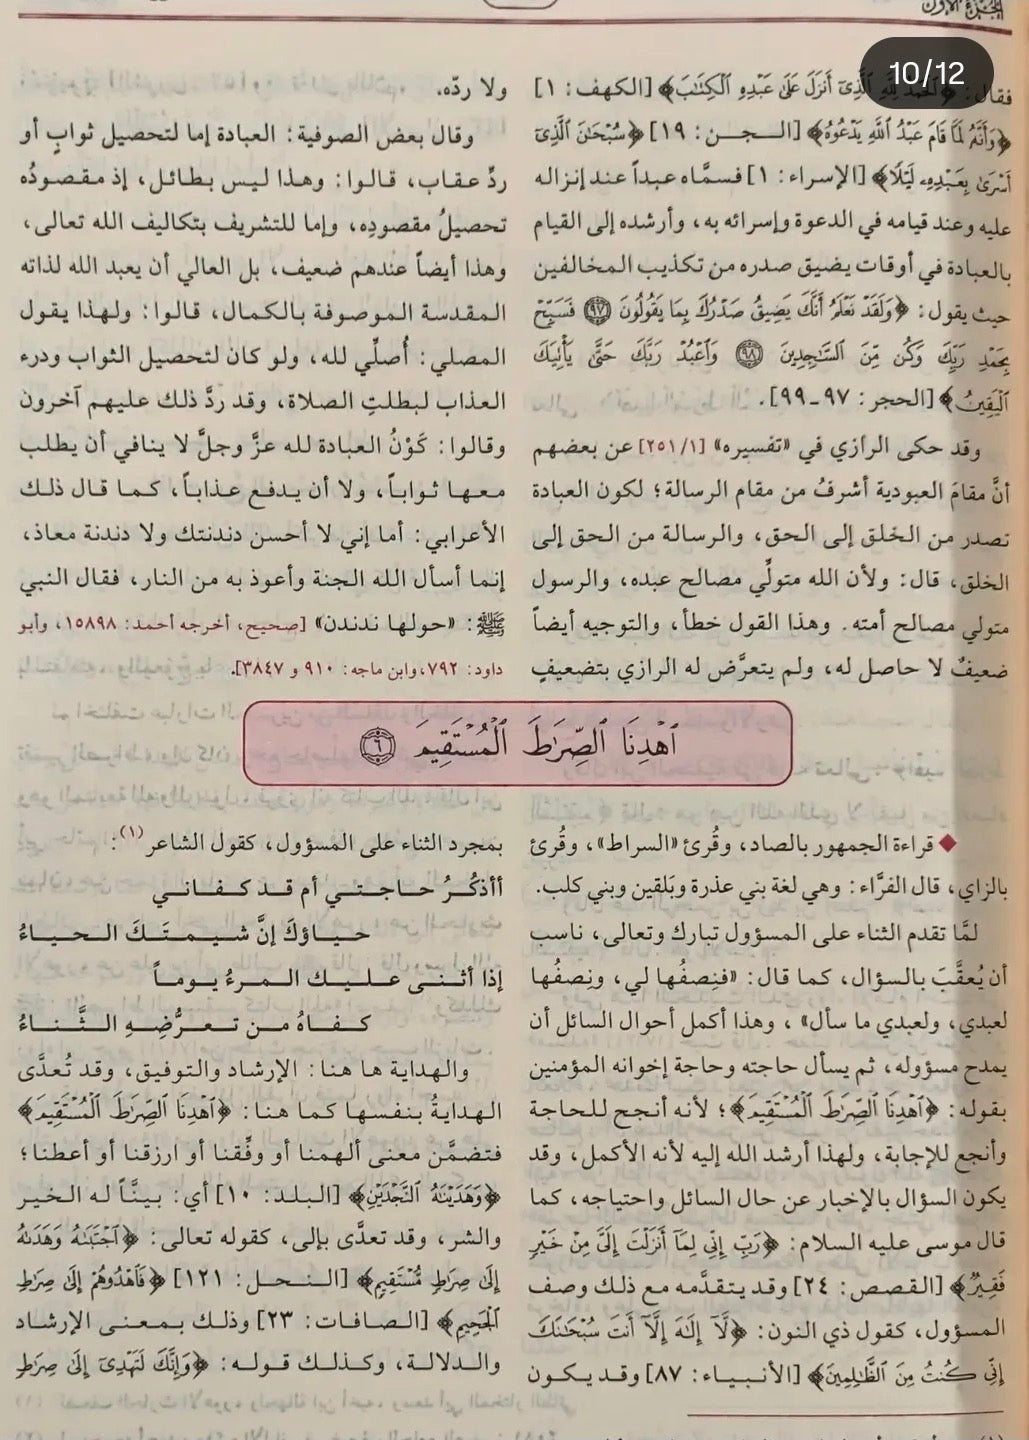 الجزء الأول
10/12
فقال: ﴿الحمد لله الذي أنزل على عبده الكتاب﴾ [الكهف: ١]
﴿وأنه لما قام عبد الله يدعوه﴾ [الـجـن: ١٩] ﴿سبحان الذي
أسرى بعبده ليلا﴾ [الإسراء: ١] فسمَّاه عبداً عند إنزاله
عليه وعند قيامه في الدعوة وإسرائه به، وأرشده إلى القيام
بالعبادة في أوقات يضيق صدره من تكذيب المخالفين
حيث يقول: ﴿ولقد نعلم أنك يضيق صدرك بما يقولون ٩٧ فسبح
بحمد ربك وكن من الساجدين ٩٨ واعبد ربك حتى يأتيك
اليقين﴾ [الحجر: ٩٧-٩٩].
وقد حكى الرازي في «تفسيره» [٢٥١/١] عن بعضهم
أنَّ مقامَ العبودية أشرفُ من مقام الرسالة؛ لكون العبادة
تصدر من الخلق إلى الحق، والرسالة من الحق إلى
الخلق، قال: ولأن الله متولِّي مصالح عبده، والرسول
متولي مصالح أمته. وهذا القول خطأ، والتوجيه أيضاً
ضعيفٌ لا حاصل له، ولم يتعرَّض له الرازي بتضعيفٍ
ولا ردّه.
وقال بعض الصوفية: العبادة إما لتحصيل ثوابٍ أو
ردِّ عقاب، قالوا: وهذا ليس بطائل، إذ مقصودُه
تحصيلُ مقصودِه، وإما للتشريف بتكاليف الله تعالى،
وهذا أيضاً عندهم ضعيف، بل العالي أن يعبد الله لذاته
المقدسة الموصوفة بالكمال، قالوا: ولهذا يقول
المصلي: أُصلِّي لله، ولو كان لتحصيل الثواب ودرء
العذاب لبطلتِ الصلاة، وقد ردَّ ذلك عليهم آخرون
وقالوا: كَوْنُ العبادة لله عزَّ وجلَّ لا ينافي أن يطلب
معها ثواباً، ولا أن يدفع عذاباً، كما قال ذلك
الأعرابي: أما إني لا أحسن دندنتك ولا دندنة معاذ،
إنما أسأل الله الجنة وأعوذ به من النار، فقال النبي
ﷺ: «حولها ندندن» [صحيح، أخرجه أحمد: ١٥٨٩٨، وأبو
داود: ٧٩٢، وابن ماجه: ٩١٠ و ٣٨٤٧].
ٱهْدِنَا ٱلصِّرَٰطَ ٱلْمُسْتَقِيمَ ٦
قراءة الجمهور بالصاد، وقُرئ «السراط»، وقُرئ
بالزاي، قال الفرَّاء: وهي لغة بني عذرة وبَلقين وبني كلب.
لمَّا تقدم الثناء على المسؤول تبارك وتعالى، ناسب
أن يُعقَّبَ بالسؤال، كما قال: «فنِصفُها لي، ونِصفُها
لعبدي، ولعبدي ما سأل» ، وهذا أكمل أحوال السائل أن
يمدح مسؤوله، ثم يسأل حاجته وحاجة إخوانه المؤمنين
بقوله: ﴿ٱهْدِنَا ٱلصِّرَٰطَ ٱلْمُسْتَقِيمَ﴾؛ لأنه أنجح للحاجة
وأنجع للإجابة، ولهذا أرشد الله إليه لأنه الأكمل، وقد
يكون السؤال بالإخبار عن حال السائل واحتياجه، كما
قال موسى عليه السلام: ﴿رب إني لما أنزلت إلي من خير
فقير﴾ [القصص: ٢٤] وقد يتقدَّمه مع ذلك وصف
المسؤول، كقول ذي النون: ﴿لا إله إلا أنت سبحانك
إني كنت من الظالمين﴾ [الأنبياء: ٨٧] وقد يكون
بمجرد الثناء على المسؤول، كقول الشاعر(١):
أأذكُرُ حاجتي أم قد كفاني
حياؤكَ إنَّ شيمتَكَ الحياءُ
إذا أثنى عليك المرءُ يوماً
كفاهُ من تعرُّضِهِ الثَّناءُ
والهداية ها هنا: الإرشاد والتوفيق، وقد تُعدَّى
الهدايةُ بنفسها كما هنا: ﴿ٱهْدِنَا ٱلصِّرَٰطَ ٱلْمُسْتَقِيمَ﴾
فتضمَّن معنى ألهمنا أو وفِّقنا أو ارزقنا أو أعطنا؛
﴿وهديناه النجدين﴾ [البلد: ١٠] أي: بينَّاً له الخير
والشر، وقد تعدَّى بإلى، كقوله تعالى: ﴿اجتباه وهداه
إلى صراط مستقيم﴾ [النحل: ١٢١] ﴿فاهدوهم إلى صراط
الجحيم﴾ [الصافات: ٢٣] وذلك بمعنى الإرشاد
والدلالة، وكذلك قوله: ﴿وإنك لتهدي إلى صراط